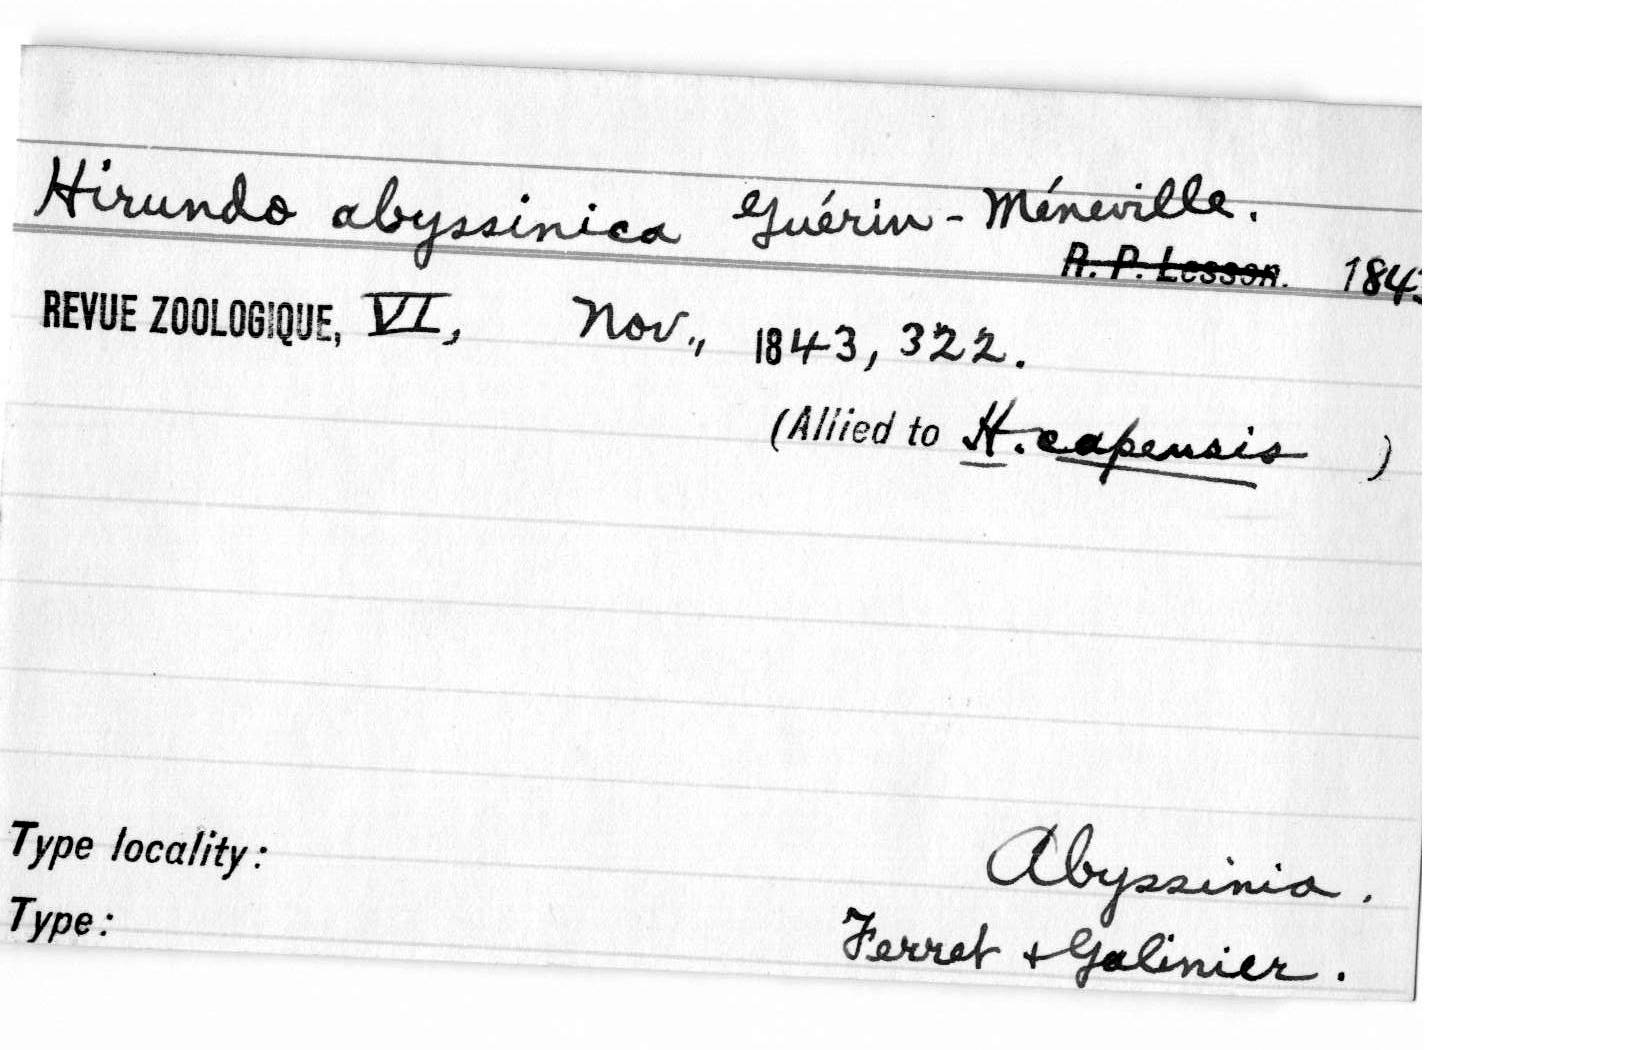 Hirundo abyssinica Guérin-Méneville.
R. P. Lesson. 1843
REVUE ZOOLOGIQUE, VI, Nov., 1843, 322.
(Allied to H. capensis )
Type locality: Abyssinia.
Type: Ferret + Galinier.